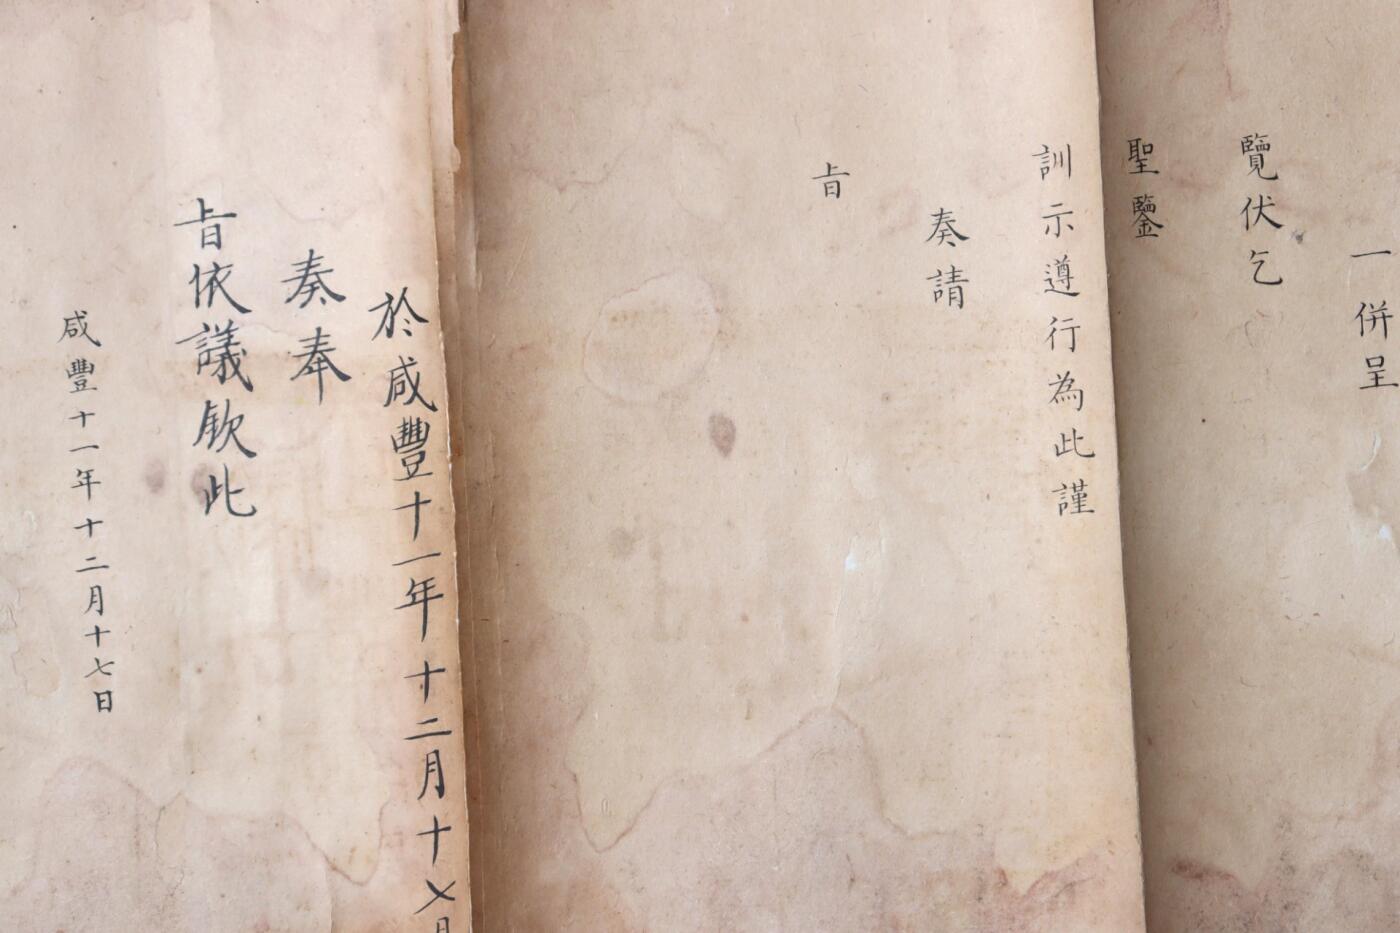 一併呈
覽伏乞
聖鑒
訓示遵行為此謹
奏請
旨
於咸豐十一年十二月十七日
奏奉
旨依議欽此
咸豐十一年十二月十七日